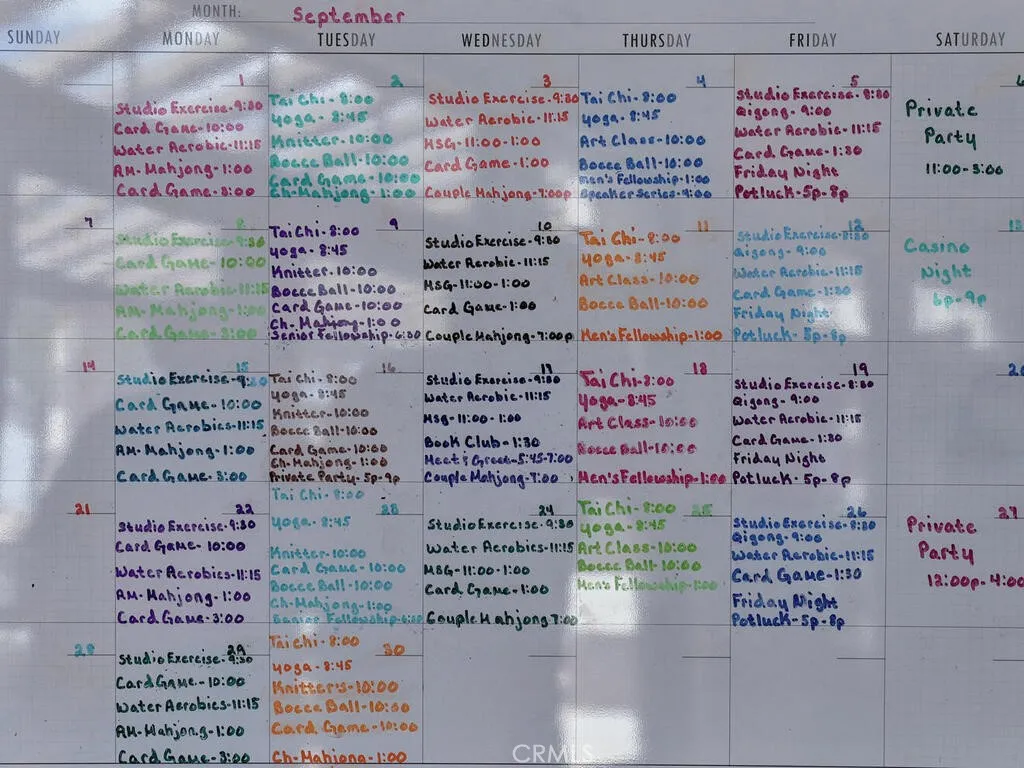 MONTH: September
SUNDAY MONDAY TUESDAY WEDNESDAY THURSDAY FRIDAY SATURDAY
1
Studio Exercise-9:30
Card Game-10:00
Water Aerobic-11:15
AM-Mahjong-1:00
Card Game-3:00
2
Tai Chi-8:00
Yoga-8:45
Knitter-10:00
Bocce Ball-10:00
Card Game-10:00
Ch-Mahjong-1:00
3
Studio Exercise-9:30
Water Aerobic-11:15
MSG-11:00-1:00
Card Game-1:00
Couple Mahjong-7:00p
4
Tai Chi-8:00
Yoga-8:45
Art Class-10:00
Bocce Ball-10:00
Men's Fellowship-1:00
Speaker Series-4:00
5
Studio Exercise-8:30
Qigong-9:00
Water Aerobic-11:15
Card Game-1:30
Friday Night
Potluck-5p-8p
6
Private
Party
11:00-3:00
7
8
Studio Exercise-9:30
Card Game-10:00
Water Aerobic-11:15
AM-Mahjong-1:00
Card Game-3:00
9
Tai Chi-8:00
Yoga-8:45
Knitter-10:00
Bocce Ball-10:00
Card Game-10:00
Ch-Mahjong-1:00
Senior Fellowship-6:30
10
Studio Exercise-9:30
Water Aerobic-11:15
MSG-11:00-1:00
Card Game-1:00
Couple Mahjong-7:00p
11
Tai Chi-8:00
Yoga-8:45
Art Class-10:00
Bocce Ball-10:00
Men's Fellowship-1:00
12
Studio Exercise-8:30
Qigong-9:00
Water Aerobic-11:15
Card Game-1:30
Friday Night
Potluck-5p-8p
13
Casino
Night
6p-9p
14
15
Studio Exercise-9:30
Card Game-10:00
Water Aerobics-11:15
AM-Mahjong-1:00
Card Game-3:00
16
Tai Chi-8:00
Yoga-8:45
Knitter-10:00
Bocce Ball-10:00
Card Game-10:00
Ch-Mahjong-1:00
Private Party-5p-9p
17
Studio Exercise-9:30
Water Aerobic-11:15
Msg-11:00-1:00
Book Club-1:30
Meet & Greet-5:45-7:00
Couple Mahjong-7:00
18
Tai Chi-8:00
Yoga-8:45
Art Class-10:00
Bocce Ball-10:00
Men's Fellowship-1:00
19
Studio Exercise-8:30
Qigong-9:00
Water Aerobic-11:15
Card Game-1:30
Friday Night
Potluck-5p-8p
20
21
22
Studio Exercise-9:30
Card Game-10:00
Water Aerobics-11:15
AM-Mahjong-1:00
Card Game-3:00
23
Tai Chi-8:00
Yoga-8:45
Knitter-10:00
Card Game-10:00
Bocce Ball-10:00
Ch-Mahjong-1:00
Senior Fellowship-6:30
24
Studio Exercise-9:30
Water Aerobics-11:15
MSG-11:00-1:00
Card Game-1:00
Couple Mahjong 7:00
25
Tai Chi-8:00
Yoga-8:45
Art Class-10:00
Bocce Ball-10:00
Men's Fellowship-1:00
26
Studio Exercise-8:30
Qigong-9:00
Water Aerobic-11:15
Card Game-1:30
Friday Night
Potluck-5p-8p
27
Private
Party
12:00p-4:00
28
29
Studio Exercise-9:30
Card Game-10:00
Water Aerobics-11:15
AM-Mahjong-1:00
Card Game-3:00
30
Tai Chi-8:00
Yoga-8:45
Knitter's-10:00
Bocce Ball-10:00
Card Game-10:00
Ch-Mahjong-1:00
CRMLS